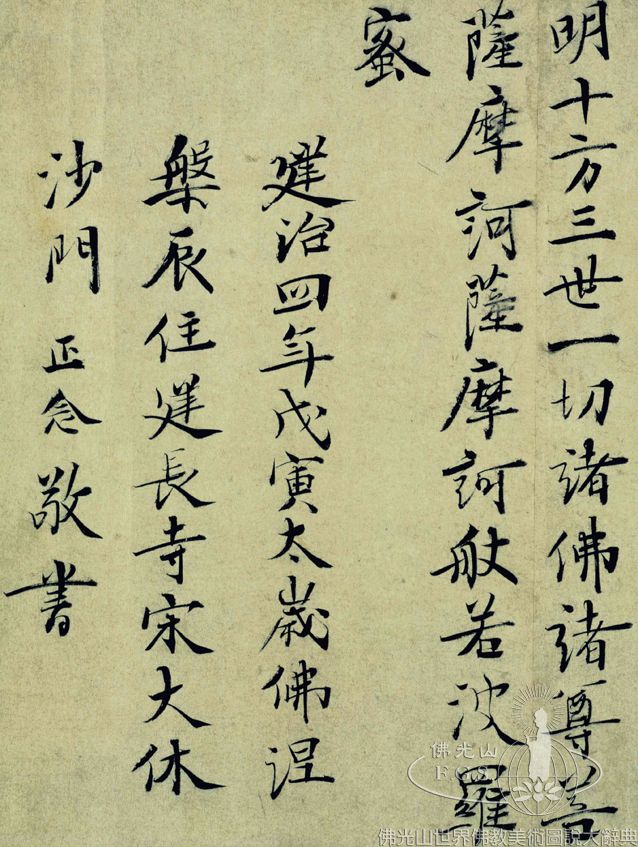 明十方三世一切諸佛諸尊菩
薩摩訶薩摩訶般若波羅
蜜
建治四年戊寅太歲佛涅
槃辰住建長寺宋大休
沙門正念敬書
佛光山
FGS
佛光山世界佛教美術圖說大辭典